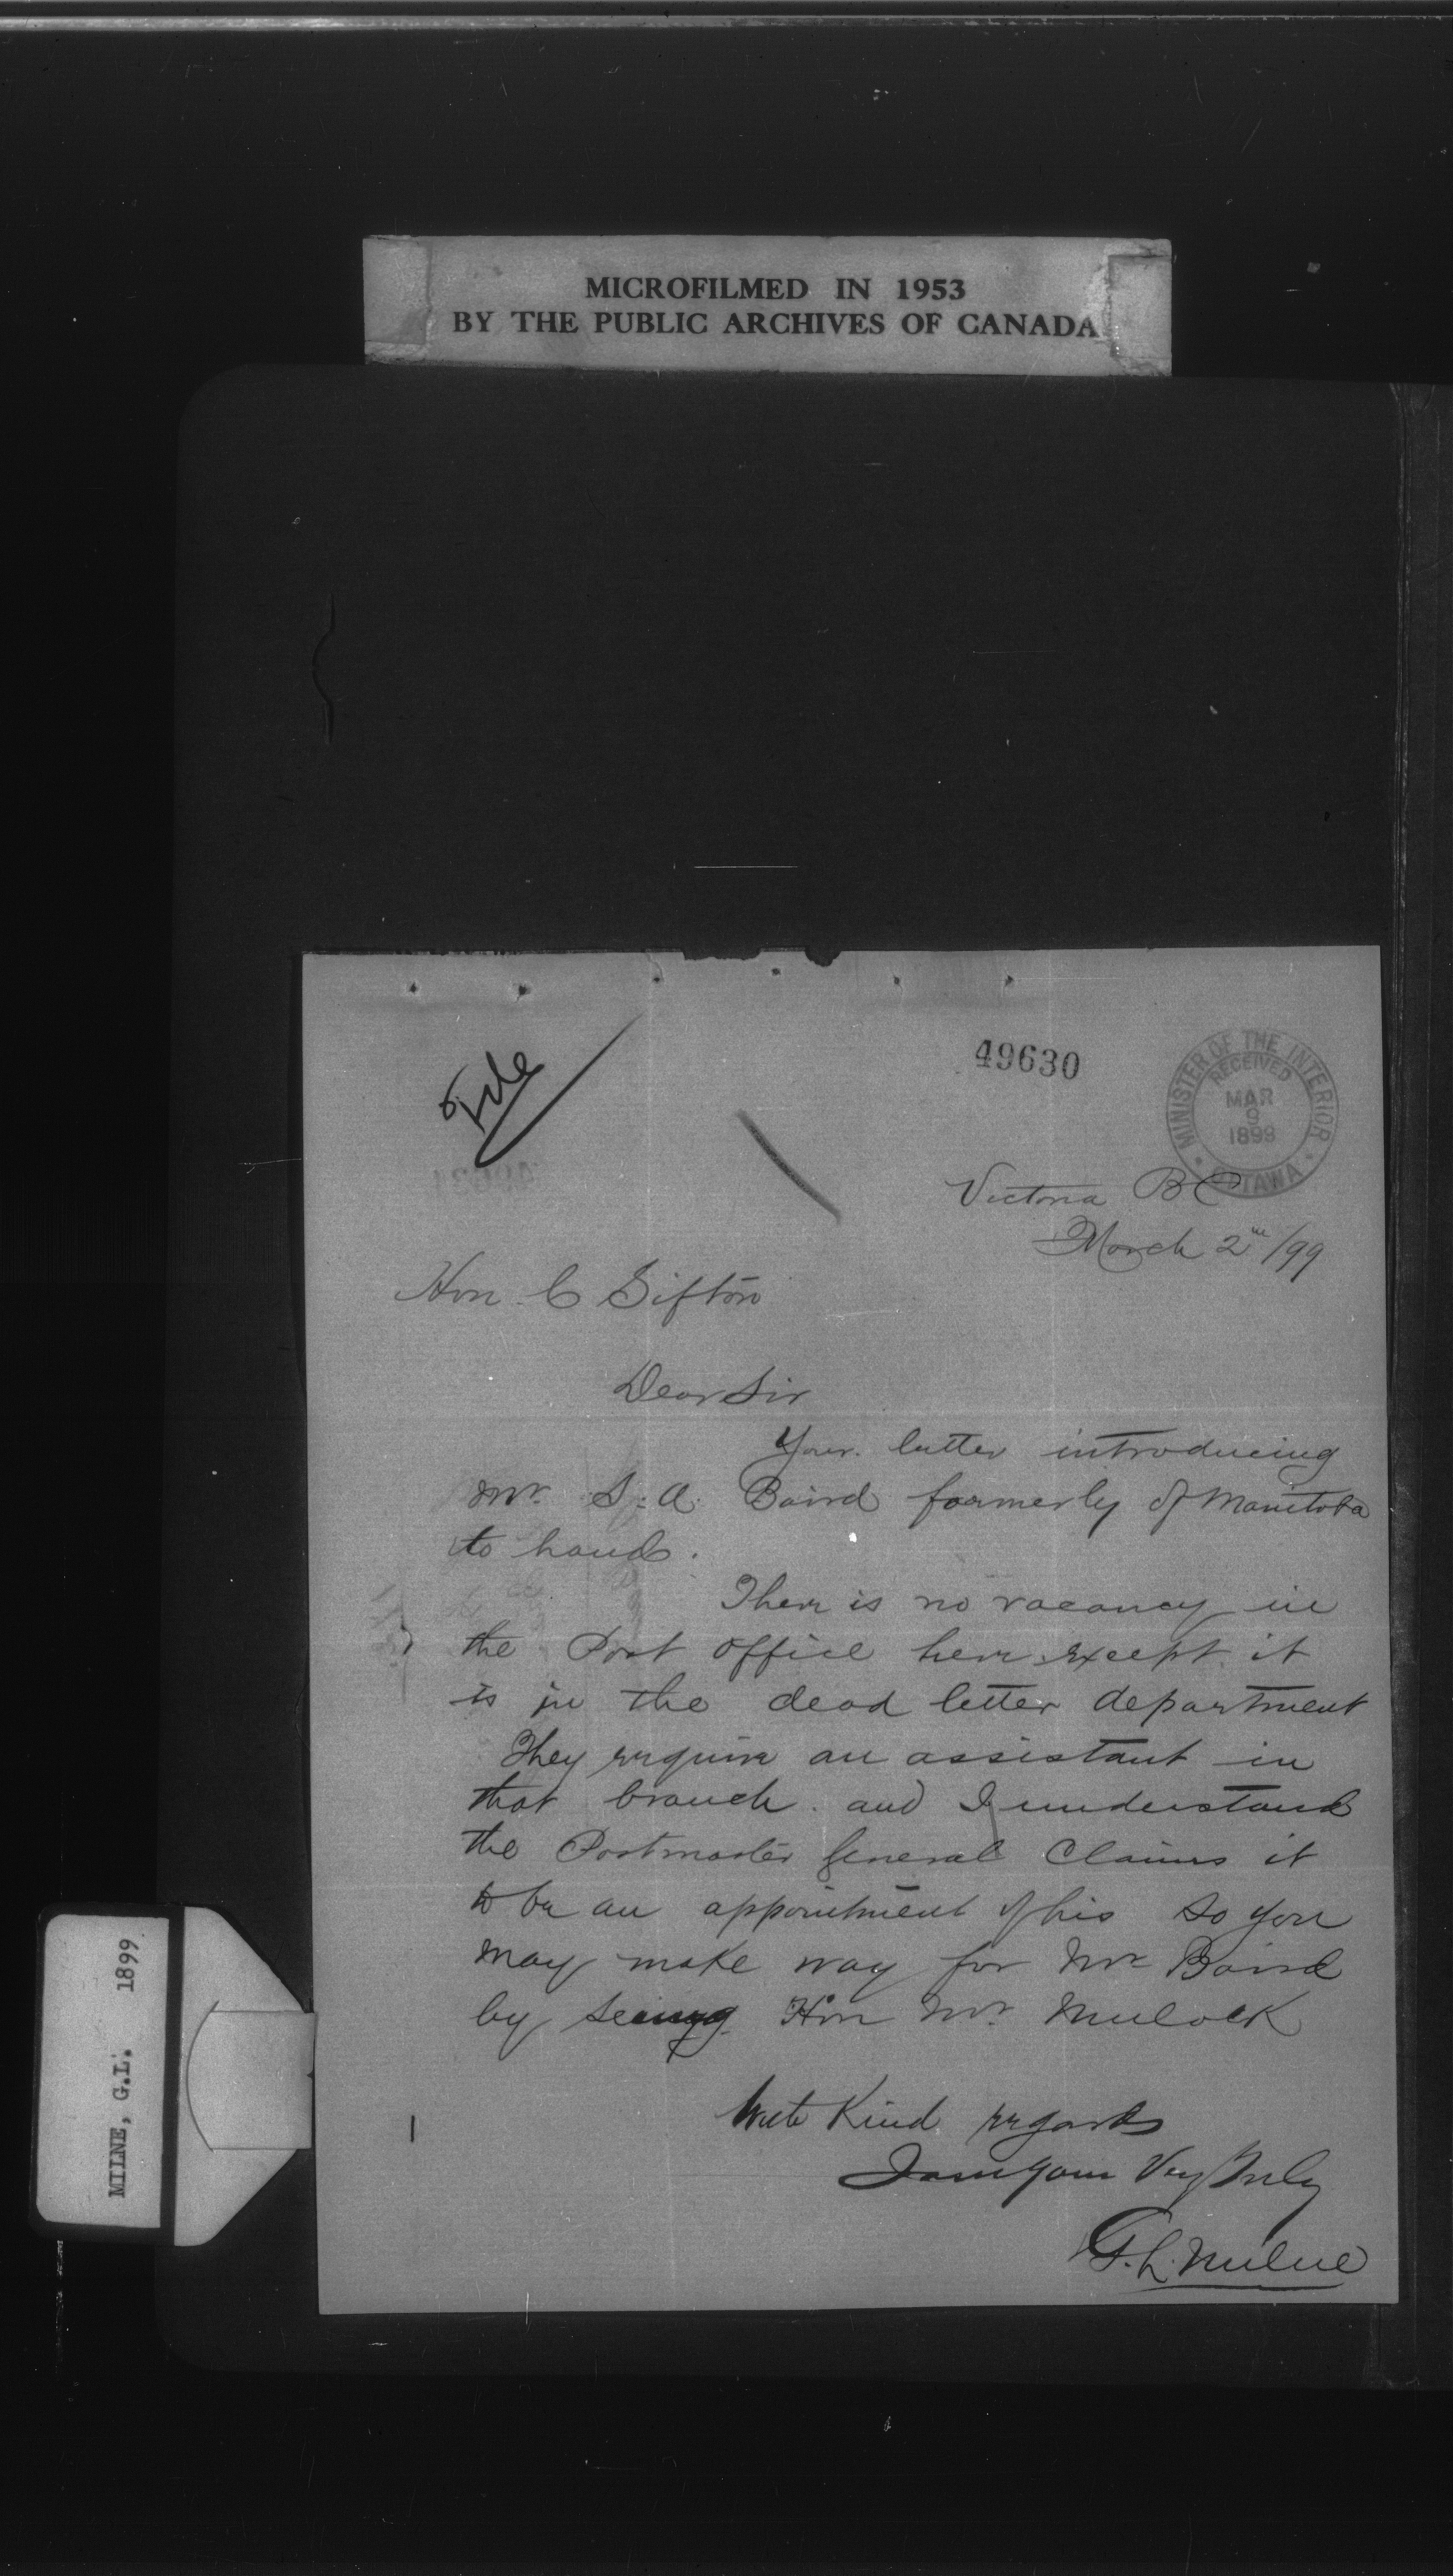 MICROFILMED IN 1953
BY THE PUBLIC ARCHIVES OF CANADA
File
49630
MINISTER OF THE INTERIOR
RECEIVED
MAR
9
1899
OTTAWA
Victoria BC
March 2nd /99
Hon. C Sifton
Dear Sir
Your letter introducing
Mr. S. A. Baird formerly of Manitoba
to hand.
There is no vacancy in
the Post Office here except it
is in the dead letter department
They require an assistant in
that branch. and I understand
the Postmaster General Claims it
to be an appointment of his so you
may make way for Mr Baird
by seeing Hon Mr. Mulock
With Kind regards
I am yours Very Truly
G. L. Milne
MILNE, G.L. 1899